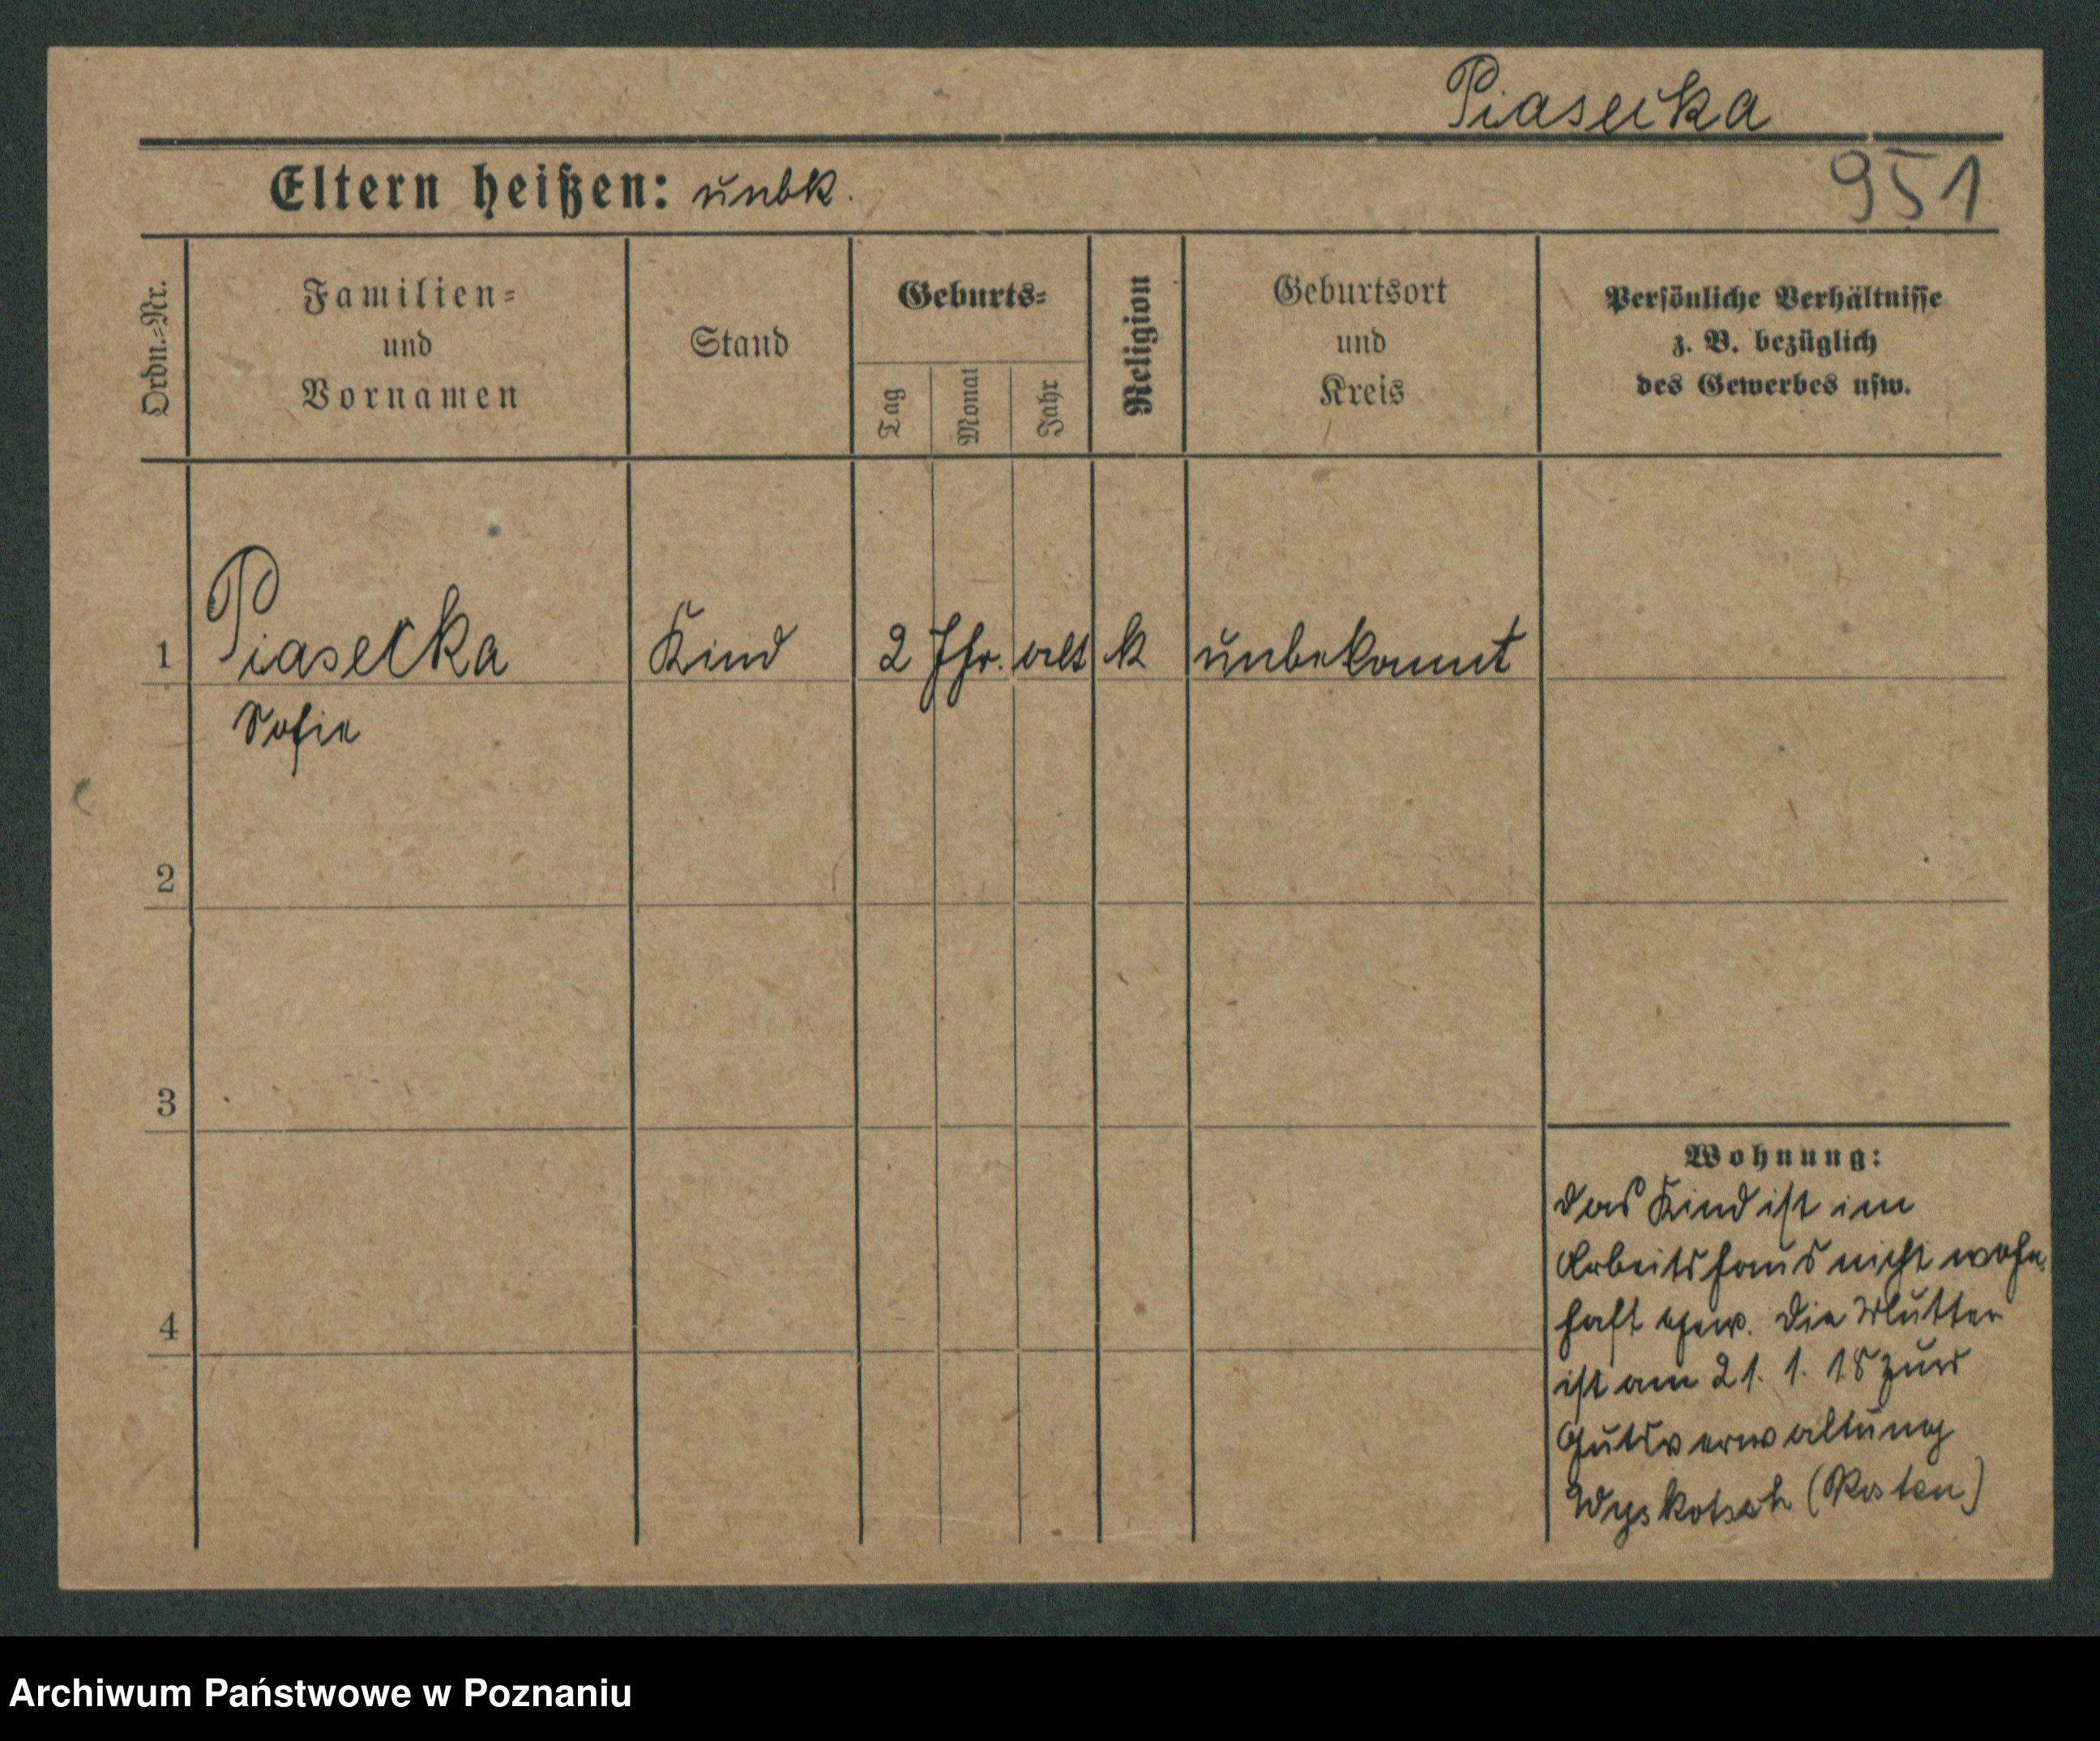 Piasecka
Eltern heißen: unbk.
951
Ordn.-Nr.
Familien-
und
Vornamen
Stand
Geburts-
Tag
Monat
Jahr
Religion
Geburtsort
und
Kreis
Persönliche Verhältnisse
z. B. bezüglich
des Gewerbes usw.
1 Piasecka Kind 2 Jhr. alt k unbekannt
Sofie
2
3
4
Wohnung:
das Kind ist im
Arbeitshaus nicht wohn-
haft gew. Die Mutter
ist am 21. 1. 18 zur
Gutsverwaltung
Wyskotsch (Kosten)
Archiwum Państwowe w Poznaniu